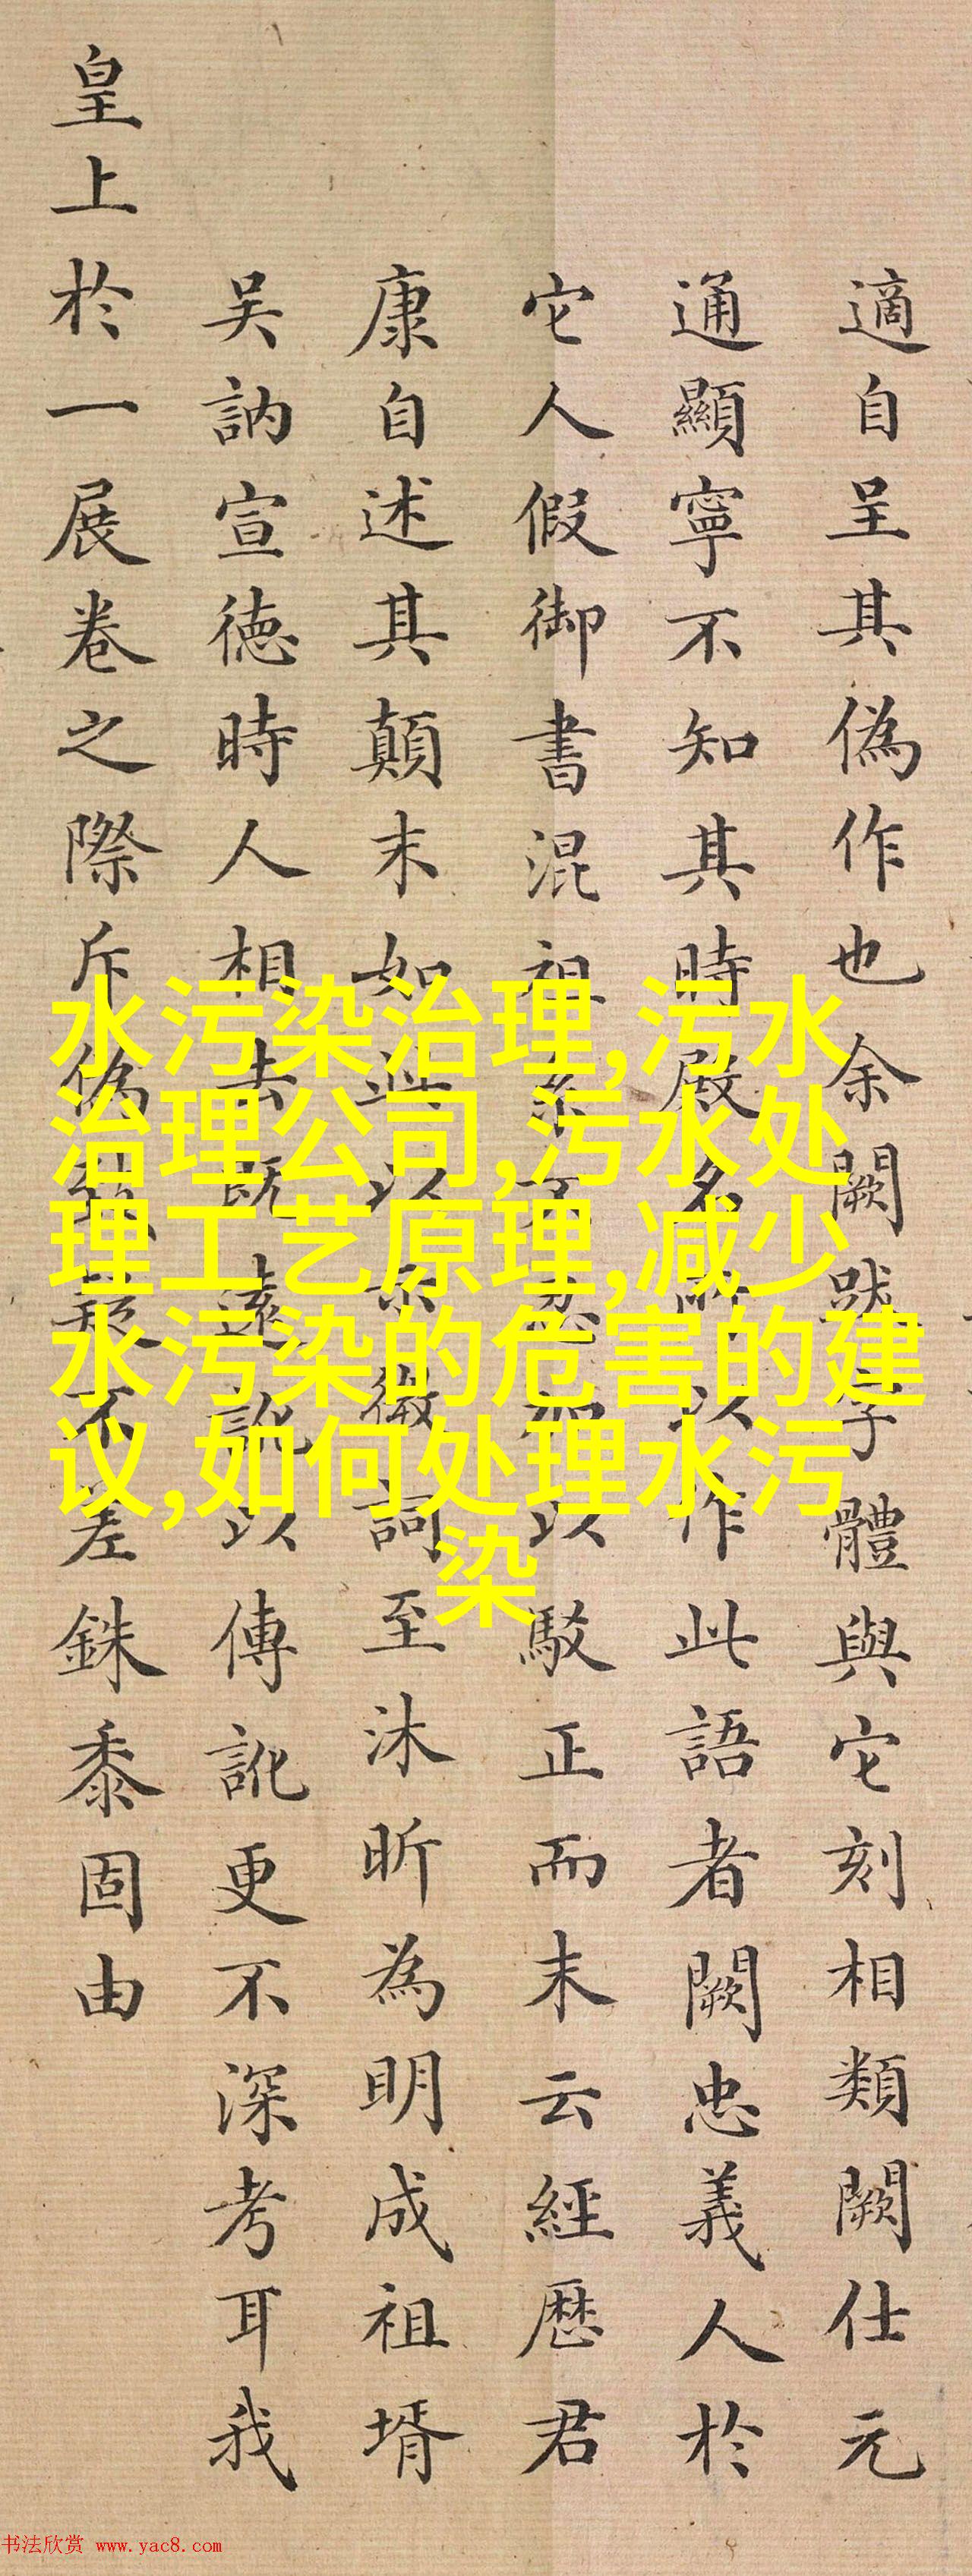 適自呈其偽作也余闕跋字體與它刻相類闕仕元
通顯寧不知其時殿名以作此語者闕忠義人於
它人假御書混祖系以駁正而末云經歴君
康自述其顛末如此以徵詞至沐昕為明成祖壻
吴訥宣徳時人相去既遠訛以傳訛更不深考耳我
皇上於一展卷之際斥偽疑不差銖黍固由
水污染治理,污水
治理公司,污水处
理工艺原理,减少
水污染的危害的建
议,如何处理水污
染
书法欣赏 www.yac8.com